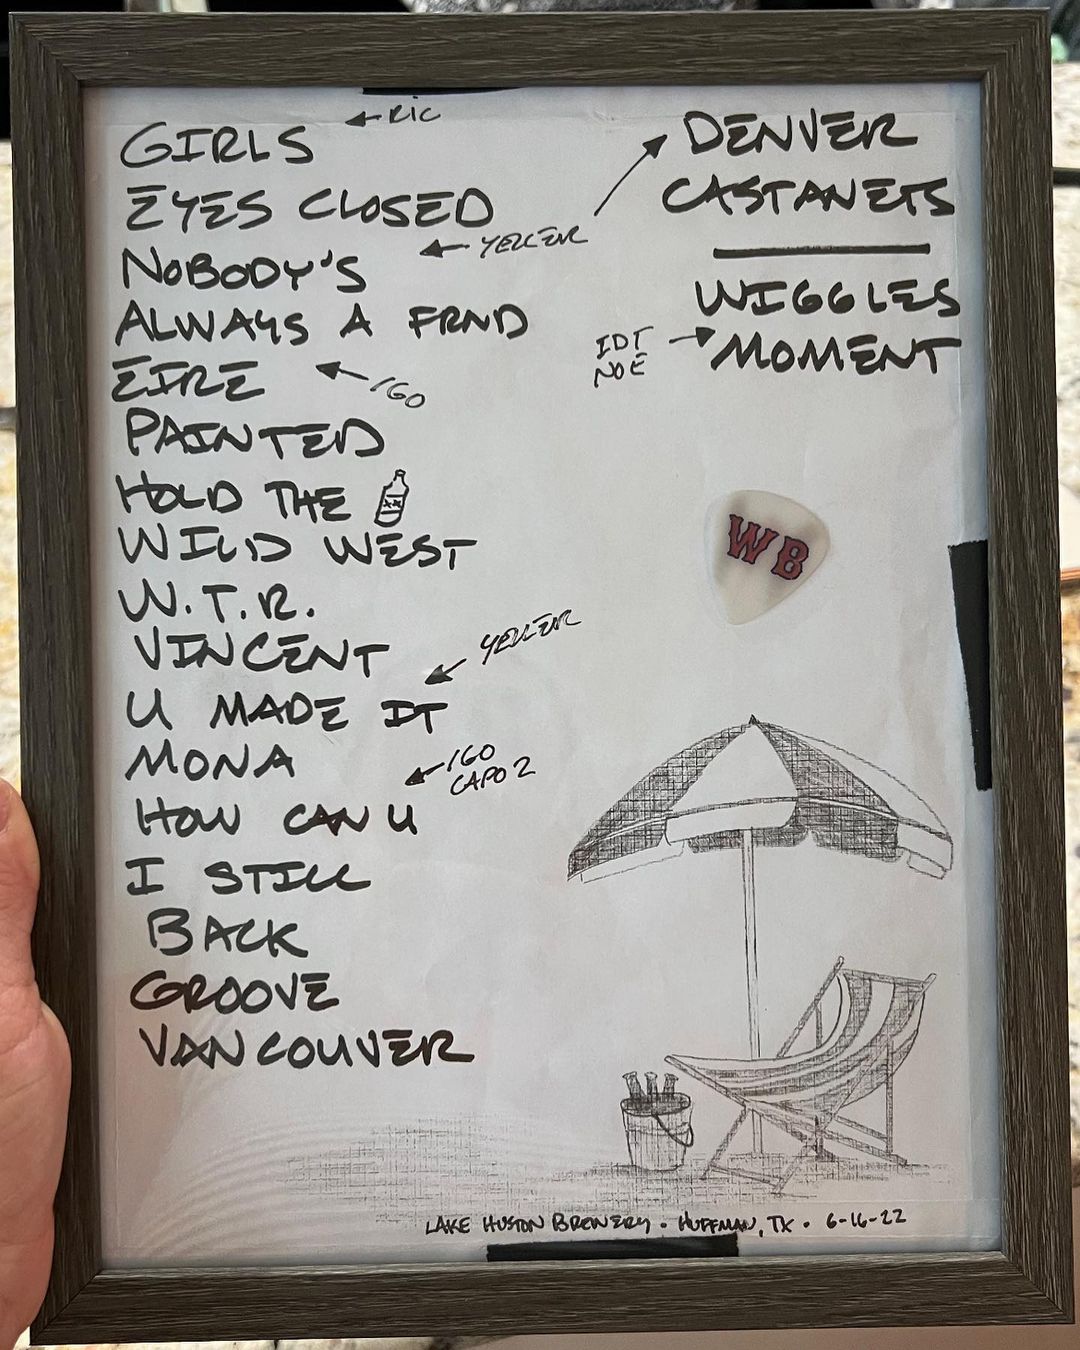 GIRLS ← RIC
EYES CLOSED
NOBODY'S ← YELLER
ALWAYS A FRND
EIRE ← 160
PAINTED
HOLD THE
WILD WEST
W.T.R.
VINCENT
U MADE IT ← YELLER
MONA
HOW CAN U ← 160 CAPO 2
I STILL
BACK
GROOVE
VANCOUVER
DENVER
CASTANETS
WIGGLES
IDT → MOMENT
NOE
WB
LAKE HUSTON BREWERY · HUFFMAN, TX · 6-16-22